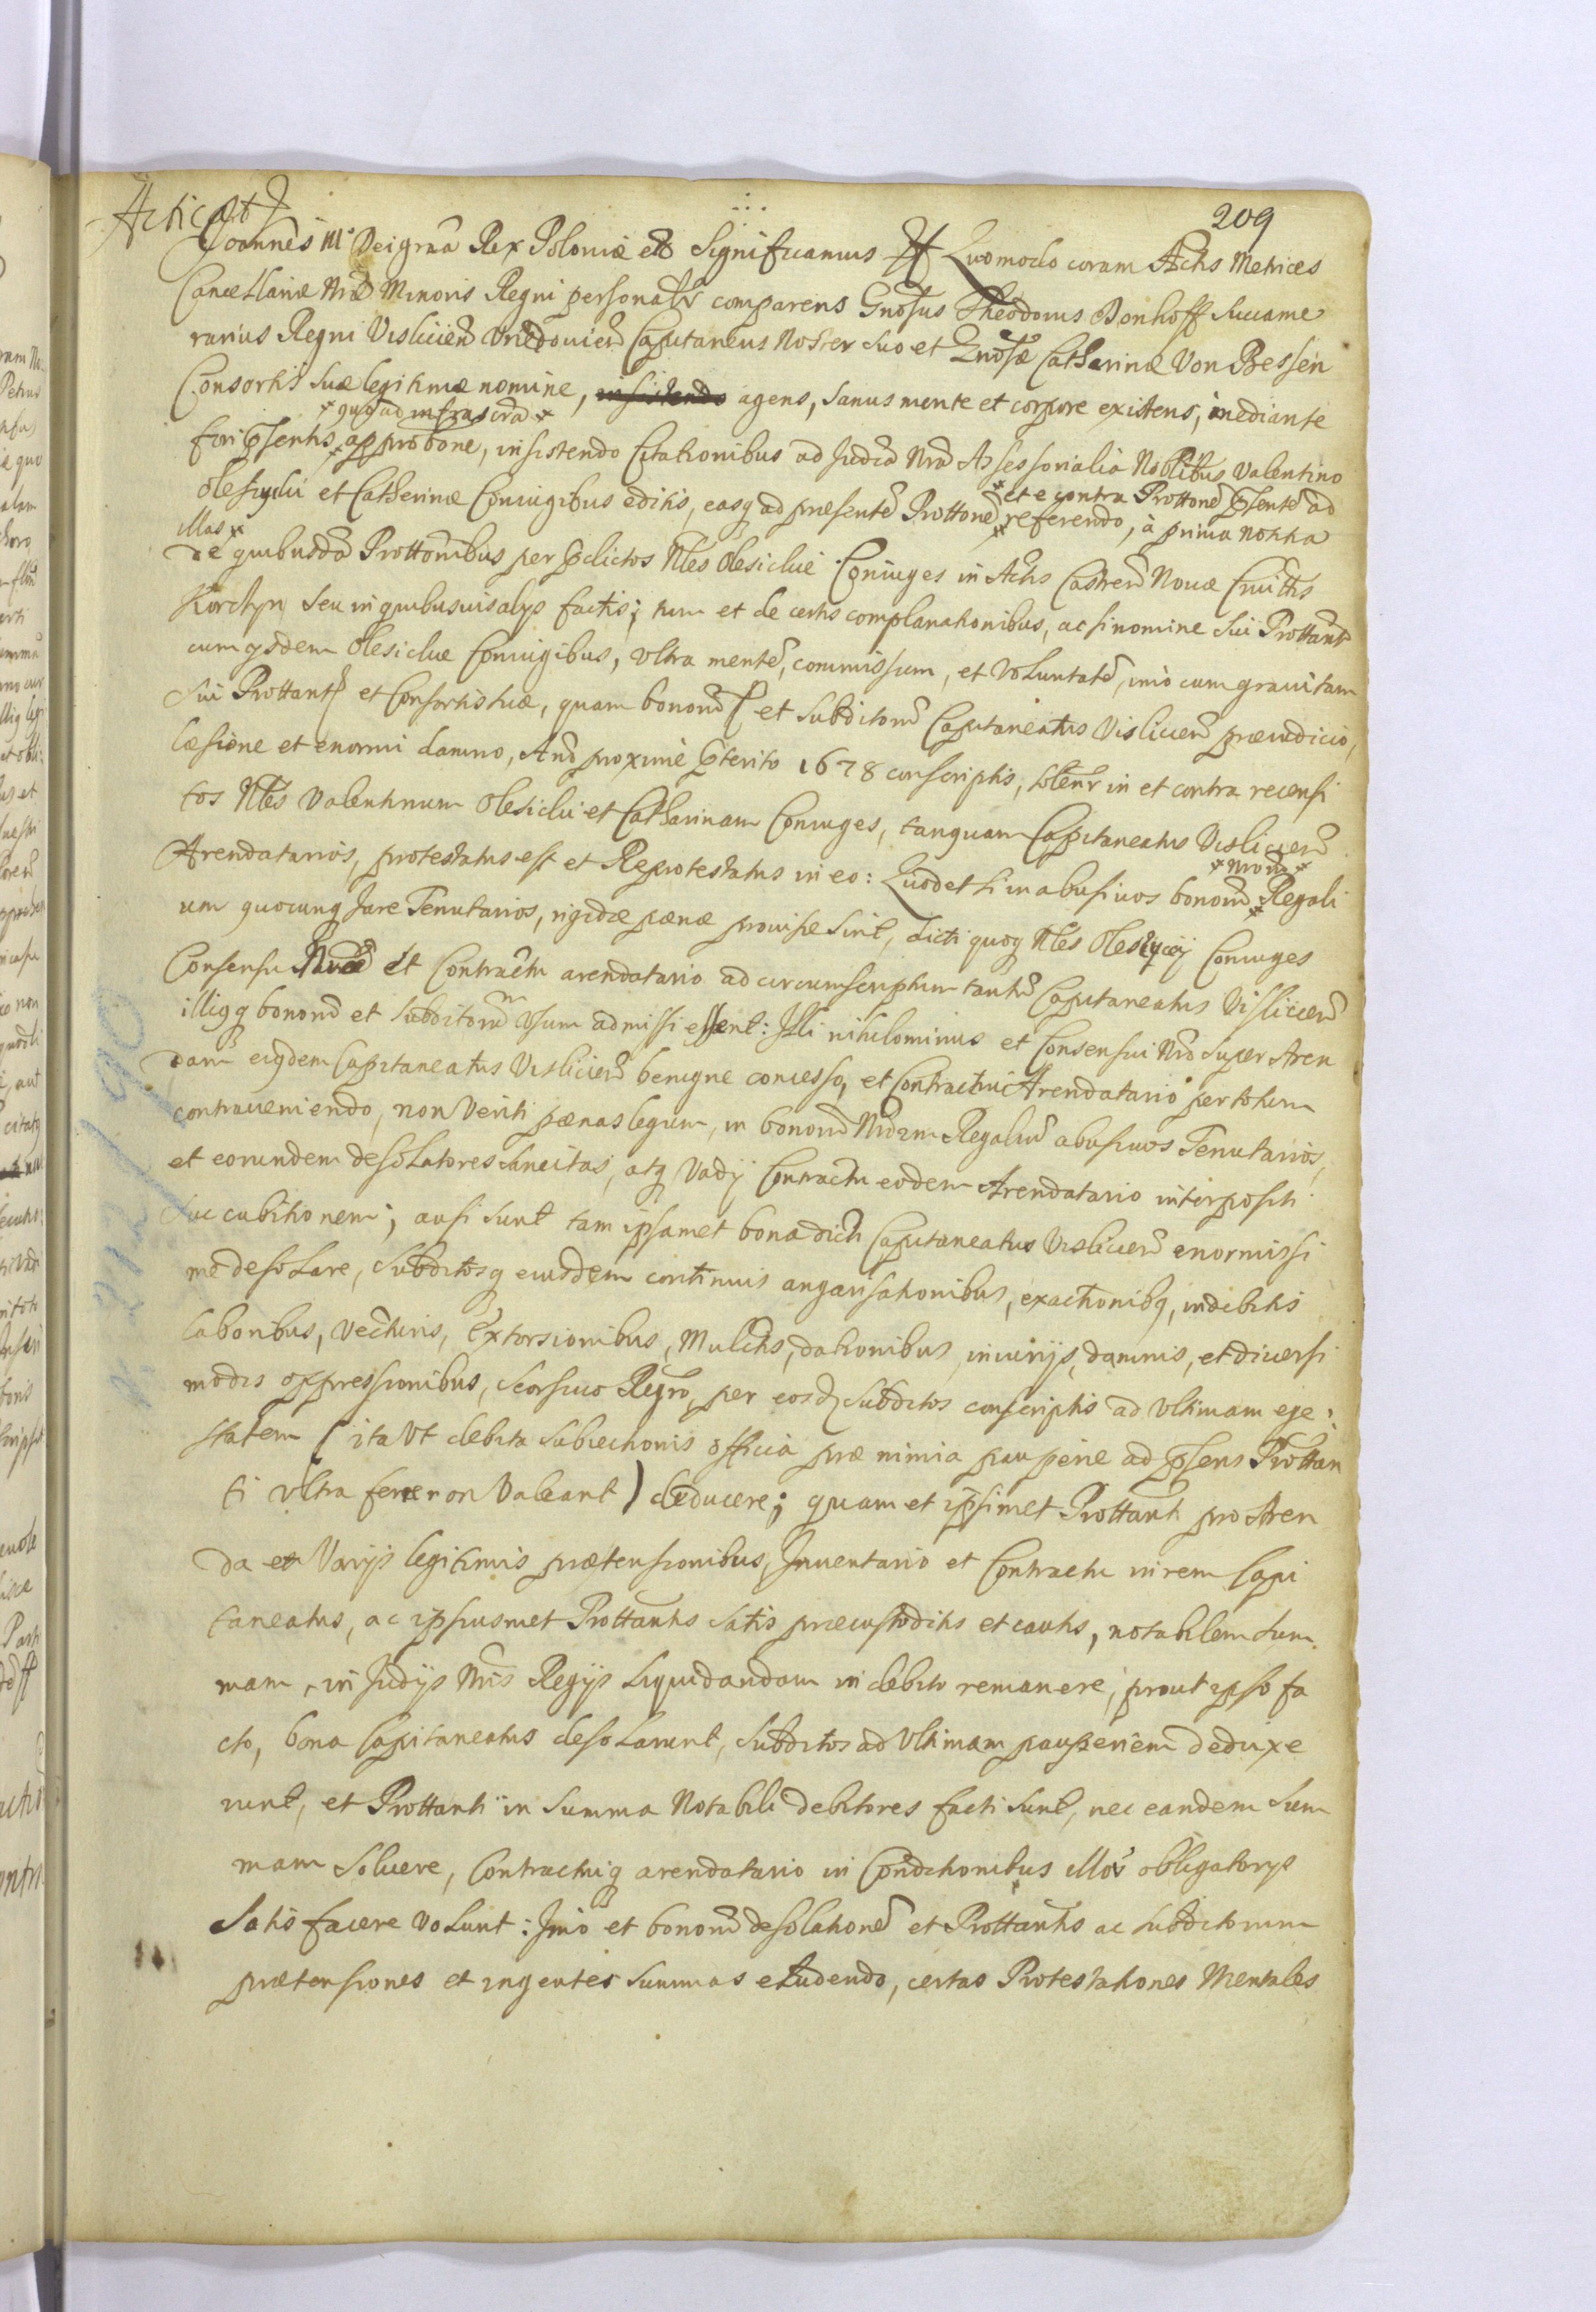 209
Acticat
Joannes III Dei gra͠a Rex Poloniæ etc Significamus etc Quomodo coram Actis Metrices
Cancellariæ Nræ Minoris Regni personalr comparens Gnosus Theodorus Donhoff Succame
rarius Regni Vislicien͠ Vrzedovien͠ Capitaneus Noster suo et Gnosæ Catharinæ Von Bessen
Consortis suæ legitimæ nomine, insistendo agens, sanus mente et corpore existens, mediante
* quo ad infrascra *
fori p͠sentis * approb͠one, insistendo Citationibus ad Judia Nra Assessorialia Noblibus Valentino
* et e contra Prottone͠ p͠sente͠ ad
Olesiycki et Catherinæ Coniugibus editis, easq ad præsente͠ Prottone͠ * referendo, à prima notitia
illas *
de quibusda͠ Prottonibus per p͠dictos Nles Olesickie Coniuges in Actis Castren͠ Nouæ Ciuittis
Korchyn seu in quibusuis alys factis; tum et de certis complanationibus, ac si nomine sui Prottantis
cum ysdem Olesickie Coniugibus, vltra mente͠, commissum, et voluntate͠, imò cum graui tam
sui Prottantis et Consortis suæ, quam bonoru͠ et subditoru͠ Capitaneatus Vislicien͠ præiudicio,
læsione et enormi damno, An͠o proximè p͠terito 1678 conscriptis, solenr in et contra recensi
tos Nles Valentinum Olesicki et Catharinam Coniuges, tanquam Capitaneatus Vislicien͠
* Nroru͠ *
Arendatarios, protestatus est et Reprotestatus in eo: Quod etsi in abusiuos bonoru͠ * Regali
um quocunq Jure Tenutarios, rigidæ pænæ prouisæ sint, dicti quoq Nles Olesiyccij Coniuges
Consensu Nro et Contractu arendatario ad circumscriptum tantu͠ Capitaneatus Vislicien͠
illiqq bonoru͠ et subditoru͠ vsum admissi essent: Illi nihilominus et Consensui Nro super Aren
dam eiqdem Capitaneatus Vislicien͠ benigne concesso, et Contractui Arendatario per totum
contraueniendo, non veriti pænas legum, in bonoru͠ Nrorum Regaliu͠ abusiuos Tenutarios,
et eorundem desolatores sancitas, atq Vadij Contractu eodem Arendatario interpositi
succubitionem; ausi sunt tam ipsamet bona dicti Capitaneatus Vislicien͠ enormissi
mè desolare, subditosq eiusdem continuis angarisationibus, exactionibq, indebitis
laboribus, vecturis, extorsionibus, Mulctis, dationibus, iniurijs, damnis, et diuersi
modis oppressionibus, seorsiuo Regro, per eosd subditos conscriptis ad vltimam ege
statem (ita vt debita subiectionis officia præ nimia pauperie ad p͠sens Prottan
ti vltra ferre non valeant) deducere; quam et ipsimet Prottanti pro Aren
da et Varijs legitimis prætensionibus, Inuentario et Contractu in rem Capi
taneatus, ac ipsiusmet Prottantis satis præcustoditis et cautis, notabilem sum
mam, in Judijs Nris Regijs liquidandam in debito remanere, prout ipso fa
cto, bona Capitaneatus desolarunt, subditos ad vltimam pauperiem deduxe
runt, et Prottanti in summa Notabili debitores facti sunt, nec eandem sum
mam soluere, Contractuiq arendatario in Conditionibus illos obligatorys
satis facere volunt: Imò et bonoru͠ desolatione͠ et Prottantis ac subditorum
prætensiones et ingentes summas eludendo, certas Protestationes Mentales